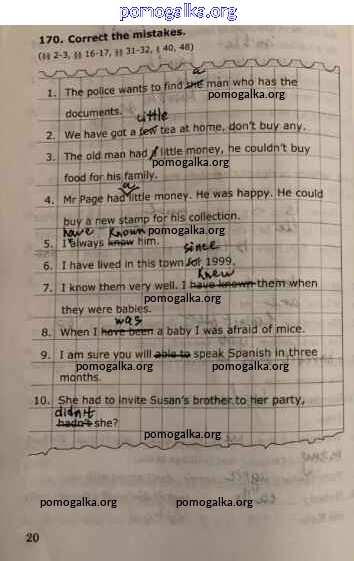 pomogalka.org
170. Correct the mistakes.
(§§ 2-3, §§ 16-17, §§ 31-32, § 40, 48)
a
1. The police wants to find the man who has the
pomogalka.org pomogalka.org
documents.
little
2. We have got a few tea at home, don't buy any.
3. The old man had a little money, he couldn't buy
pomogalka.org pomogalka.org
food for his family.
a
4. Mr Page had little money. He was happy. He could
buy a new stamp for his collection.
pomogalka.org pomogalka.org
have known
5. I always know him.
since
6. I have lived in this town for 1999.
pomogalka.org pomogalka.org
knew
7. I know them very well. I have known them when
they were babies.
pomogalka.org pomogalka.org
was
8. When I have been a baby I was afraid of mice.
9. I am sure you will able to speak Spanish in three
pomogalka.org pomogalka.org
months.
10. She had to invite Susan's brother to her party,
didn't
hadn't she?
pomogalka.org
pomogalka.org pomogalka.org pomogalka.org
20
pomogalka.org